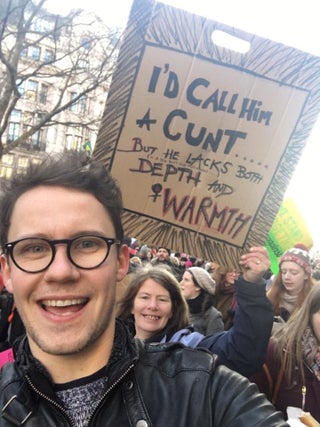 I'D CALL HIM
A CUNT.....
BUT HE LACKS BOTH
DEPTH AND
♀WARMTH